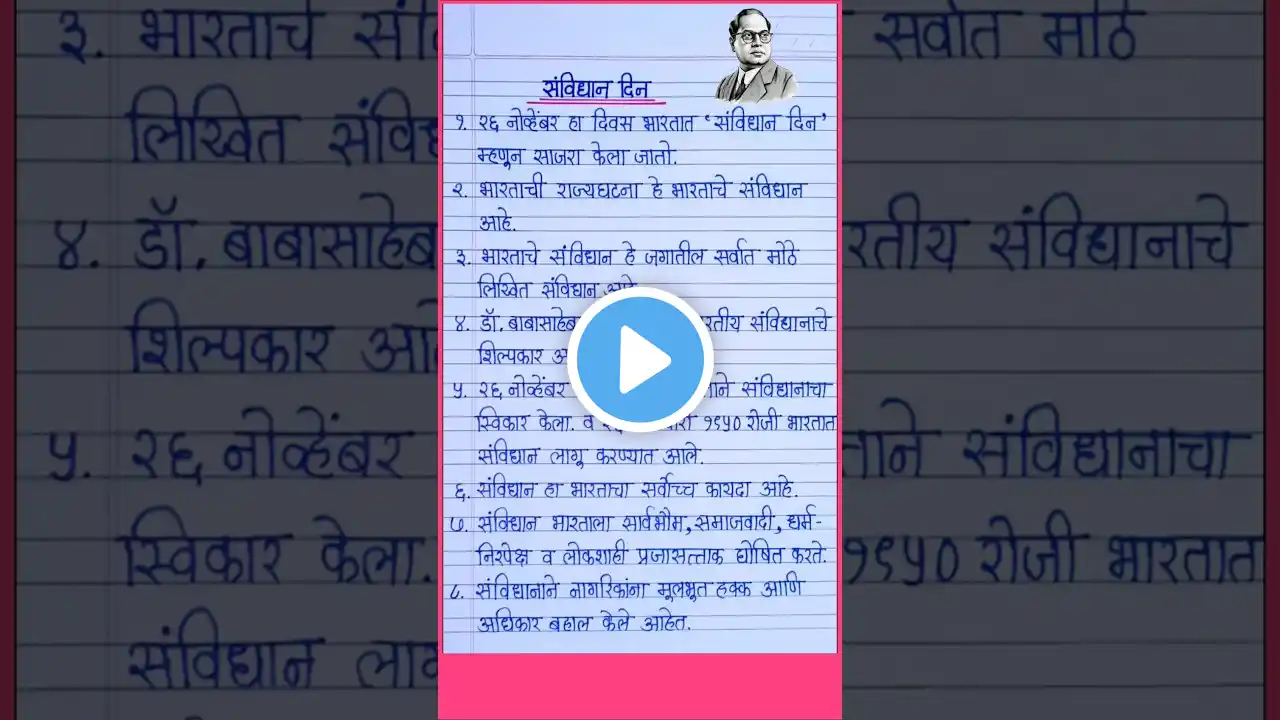 संविधान दिन
१. २६ नोव्हेंबर हा दिवस भारतात ‘संविधान दिन’
म्हणुन साजरा केला जातो.
२. भारताची राज्यघटना हे भारताचे संविधान
आहे.
३. भारताचे संविधान हे जगातील सर्वात मोठे
लिखित संविधान आहे
४. डॉ. बाबासाहेब रतीय संविधानाचे
शिल्पकार
५. २६ नोव्हेंबर ताने संविधानाचा
स्विकार केला. व १९५० रोजी भारतात
संविधान लागू करण्यात आले.
६. संविधान हा भारताचा सर्वोच्च कायदा आहे.
७. संविधान भारताला सार्वभौम, समाजवादी, धर्म-
निरपेक्ष व लोकशाही प्रजासत्ताक घोषित करते.
८. संविधानाने नागरिकांना मूलभूत हक्क आणि
अधिकार बहाल केले आहेत.